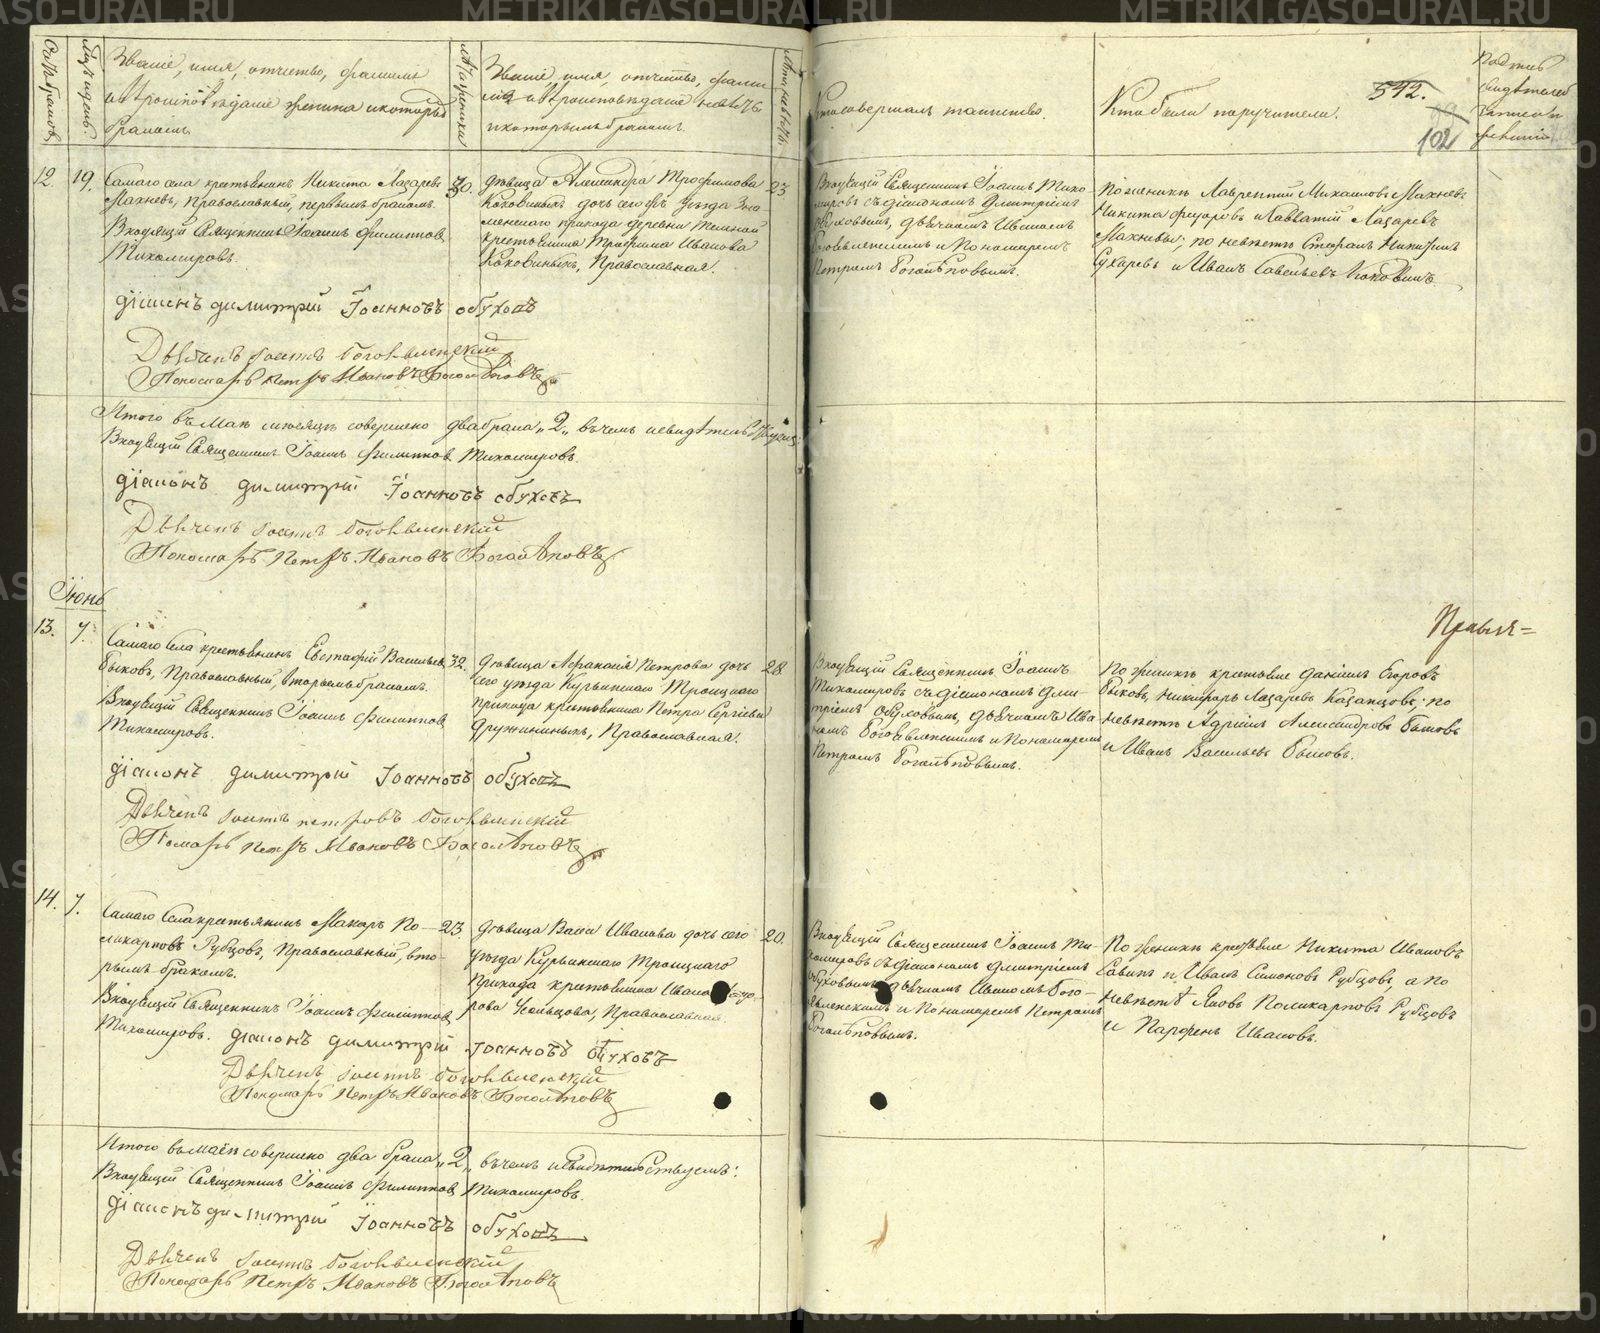 METRIKI.GASO-URAL.RU
Счетъ браковъ.
Мѣсяцъ и день.
Званіе, имя, отчество, фамилія
и вѣроисповѣданіе жениха и которымъ
бракомъ.
Лѣта жениха
Званіе, имя, отчество, фами-
лія и вѣроисповѣданіе невѣсты
и которымъ бракомъ.
Лѣта невѣсты.
Кто совершалъ таинство.
Кто были поручители.
542.
102
12.
19.
Самаго села крестьянинъ Никита Лазаревъ
Махневъ, Православный, первымъ бракомъ.
Входящій Священникъ Іоаннъ Филипповъ
Тихомировъ.
30.
дѣвица Александра Трофимова
Коковиныхъ дочь сего уѣзда
прихода деревни Темной
крестьянина Трофима Иванова
Коковиныхъ, Православная.
23
Входящій Священникъ Іоаннъ Тихо-
мировъ съ діакономъ Дмитріемъ
Обуховымъ, дьячкомъ Иваномъ
Богоявленскимъ и Пономаремъ
Петромъ Богалѣповымъ.
По женихѣ Лаврентій Михаиловъ Махневъ
Никита Федоровъ и Савватій Лазаревъ
Махневы; по невѣстѣ Стефанъ Никитинъ
Сухаревъ и Иванъ Савельевъ Коковинъ.
діаконъ димитрій Іоанновъ обуховъ
Дьячекъ Іоаннъ Богоявленскій
Пономарь Петръ Ивановъ Богалѣповъ
Итого въ Маѣ мѣсяцѣ совершено два брака „2„ въ чемъ и свидѣтельствуемъ:
Входящій Священникъ Іоаннъ Филипповъ Тихомировъ.
діаконъ димитрій Іоанновъ обуховъ
Дьячекъ Іоаннъ Богоявленскій
Пономарь Петръ Ивановъ Богалѣповъ
Іюнь
13.
7.
Самаго села крестьянинъ Евстафій Васильевъ
Быковъ, Православный, вторымъ бракомъ.
Входящій Священникъ Іоаннъ Филипповъ
Тихомировъ.
32.
Дѣвица Афанасія Петрова дочь
сего уѣзда Курьинскаго Троицкаго
прихода крестьянина Петра Сергіева
Дружининыхъ, Православная.
28.
Входящій Священникъ Іоаннъ
Тихомировъ съ діакономъ Дми-
тріемъ Обуховымъ, дьячкомъ Ива-
номъ Богоявленскимъ и Пономаремъ
Петромъ Богалѣповымъ.
По женихѣ крестьяне Даніилъ Егоровъ
Быковъ, Никифоръ Лазаревъ Казанцовъ; по
невѣстѣ Адріанъ Александровъ Быковъ
и Иванъ Васильевъ Быковъ.
діаконъ димитрій Іоанновъ обуховъ
Дьячекъ Іоаннъ петровъ Богоявленскій
Петръ Ивановъ Богалѣповъ
14.
7.
Самаго Села крестьянинъ Макаръ По-
ликарповъ Рубцовъ, Православный, вто-
рымъ бракомъ.
Входящій Священникъ Іоаннъ Филипповъ
Тихомировъ.
23.
дѣвица Васса Иванова дочь сего
уѣзда Курьинскаго Троицкаго
Прихода крестьянина Ивана
рова Православная
20.
Входящій Священникъ Іоаннъ Ти-
хомировъ съ діакономъ Дмитріемъ
Обуховымъ, дьячкомъ Иваномъ Бого-
явленскимъ и Пономаремъ Петромъ
Богалѣповымъ.
По женихѣ крестьяне Никита Ивановъ
Савинъ и Иванъ Симоновъ Рубцовъ, а по
невѣстѣ Яковъ Поликарповъ Рубцовъ
и Парфенъ Ивановъ.
діаконъ димитрій Іоанновъ обуховъ
Дьячекъ Іоаннъ Богоявленскій
Пономарь Петръ Ивановъ Богалѣповъ
Итого въ маѣ совершено два брака „2„ въ чемъ и свидѣтельствуемъ:
Входящій Священникъ Іоаннъ Филипповъ Тихомировъ.
діаконъ димитрій Іоанновъ обуховъ
Дьячекъ Іоаннъ Богоявленскій
Пономарь Петръ Ивановъ Богалѣповъ